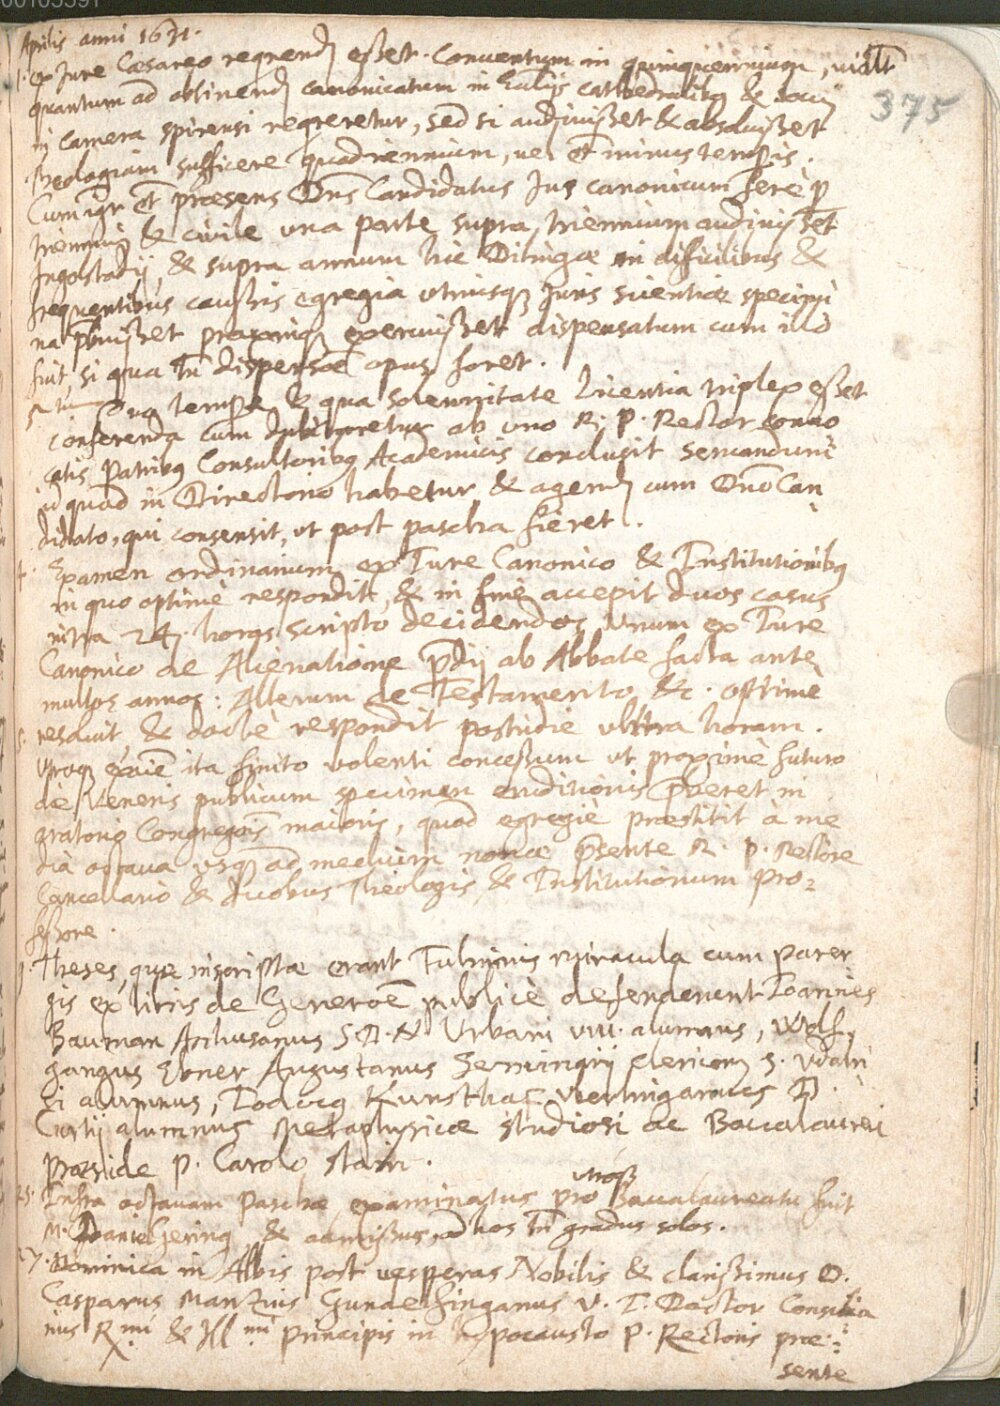 00105591
Aprilis anni 1631.
375
1. ex Jure Cæsareo regrendj esset. Conuentum in quinquennium,
quantum ad obtinendj canonicatum in Ecclijs cathedralibq &
in Camera spirensi reqreretur, sed si audiuisset & absoluisset
Theologiam sufficere quadriennium, uel et minus temporis.
Cum igr et præsens Dns Candidatus Jus canonicum ferè p
triennium & ciuile una parte supra triennium audiuisset
Ingolstadij, & supra annum hic Dilingæ in dificilibus &
frequentibus caussis egregia utriusq Juris scientiæ specimi
na pbuisset praximq exercuisset dispensatum cum illo
fuit, si qua tn dispensoe opus foret.
Quo tempore & qua solennitate Licentia triplex esset
conferenda cum dubitaretur ab uno R. P. Rector conuo
catis Patribq Consultoribq Academicis conclusit seruandum
id quod in Directorio habetur & agendj cum Dno Can
didato, qui consensit, ut post pascha fieret.
4. Examen ordinarium ex Jure Canonico & Institutionibq
in quo optimè respondit, & in fine accepit duos casus
intra 24. horas scripto decidendos, unum ex Jure
Canonico de Alienatione pdij ab Abbate facta ante
multos annos: Alterum de Testamento &c. optimè
resoluit, & doctè respondit postridie ultra horam.
5. Utroq exaie ita finito uolenti concessum ut proximè futuro
die Veneris publicum specimen eruditionis pberet in
oratorio Congregois maioris, quod egregiè præstitit à me
dia octaua usq ad mediam nonæ psente R. P. Rectore
Cancellario & duobus Theologis, & Institutionum Pro-
fessore.
Theses, quæ inscriptæ erant Fulminis miracula cum parer
gis ex libris de Generoe publicè defenderunt Joannes
Bauman S. D. N. Urbani VIII. alumnus, Wolf,
gangus Ebner Augustanus Seminarij clericorj S. Vdalri
ci alumnus, Jodocq P.
Curtij alumnus Metaphysicæ studiosi ac Baccalaurei
Præside P. Carolo Stain.
utroq
25. Infra octauam Paschæ examinatus pro Baccalaureatu fuit
M. Daniel Gering, & admissus, ad hos tn gradus solos.
27. Dominica in Albis post uesperas Nobilis & clarissimus D.
Casparus Manzius Gundelfinganus V. J. Doctor Consilia
rius Rmi & Illmi Principis in hypocausto P. Rectoris præ-
sente